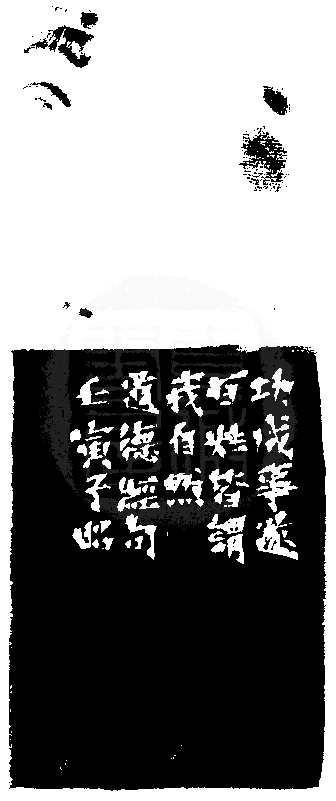 功成事遂
百姓皆謂
我自然
道德經句
壬寅子